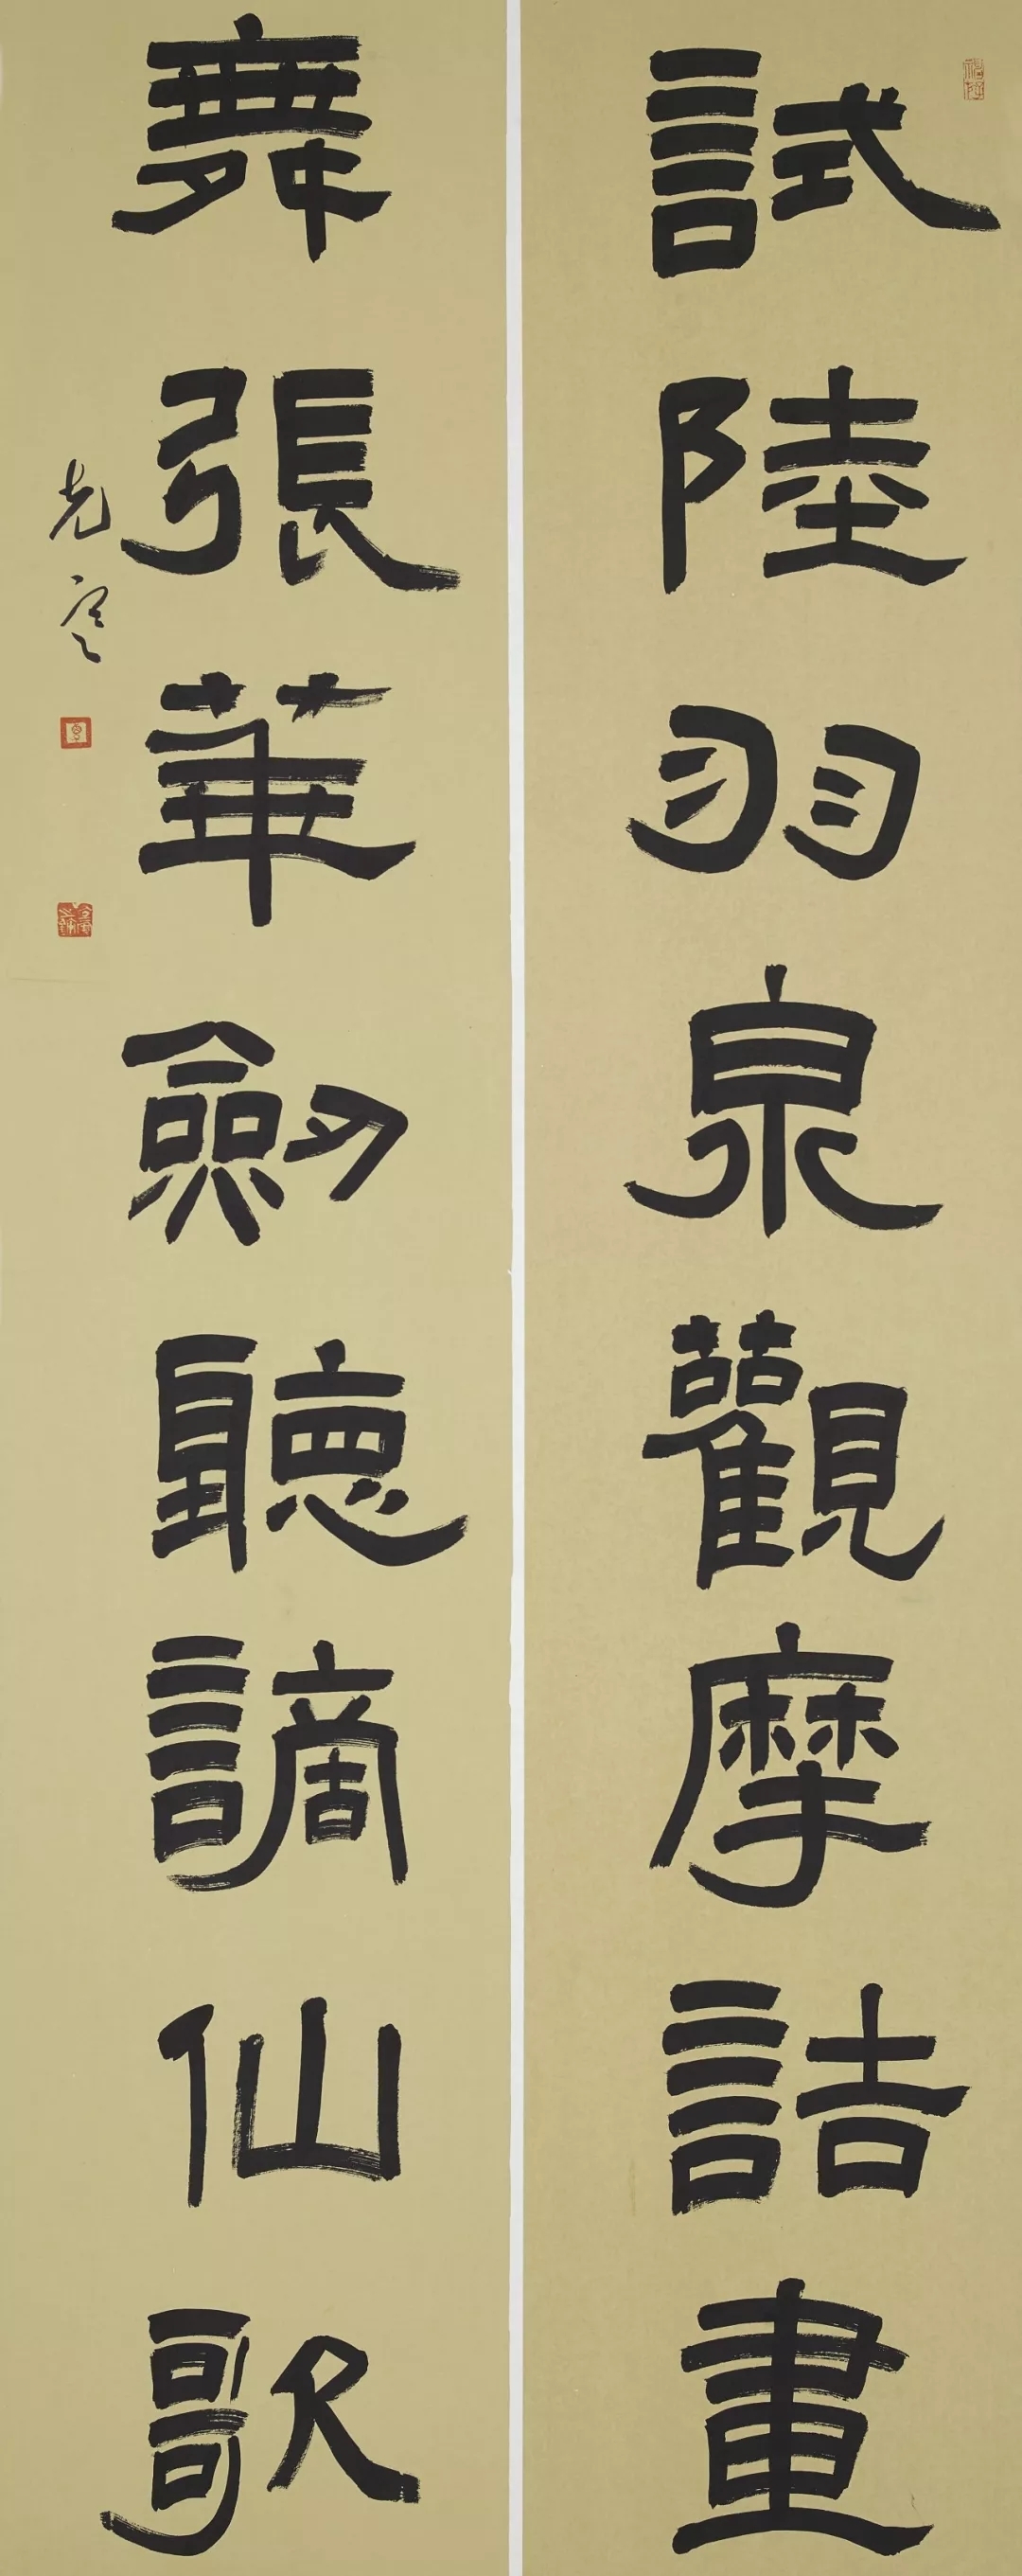 試陸羽泉觀摩詰畫
舞張華劍聽謫仙歌